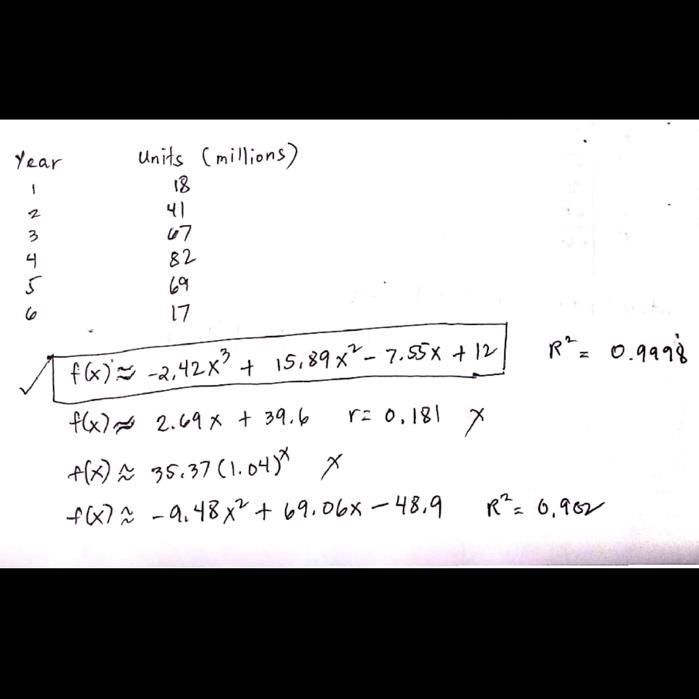 Year Units (millions)
1 18
2 41
3 67
4 82
5 69
6 17
√ f(x) ≈ -2.42x³ + 15.89x² - 7.55x + 12 R² = 0.9998
f(x) ≈ 2.69x + 39.6 r = 0.181 x
f(x) ≈ 35.37(1.04)ˣ x
f(x) ≈ -9.48x² + 69.06x - 48.9 R² = 0.902